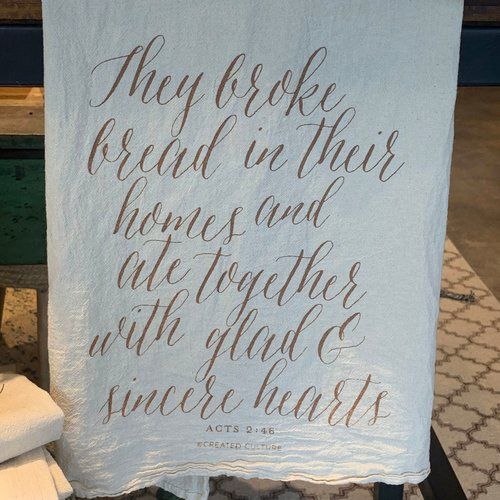 They broke
bread in their
homes and
ate together
with glad &
sincere hearts
ACTS 2:46
©CREATED CULTURE